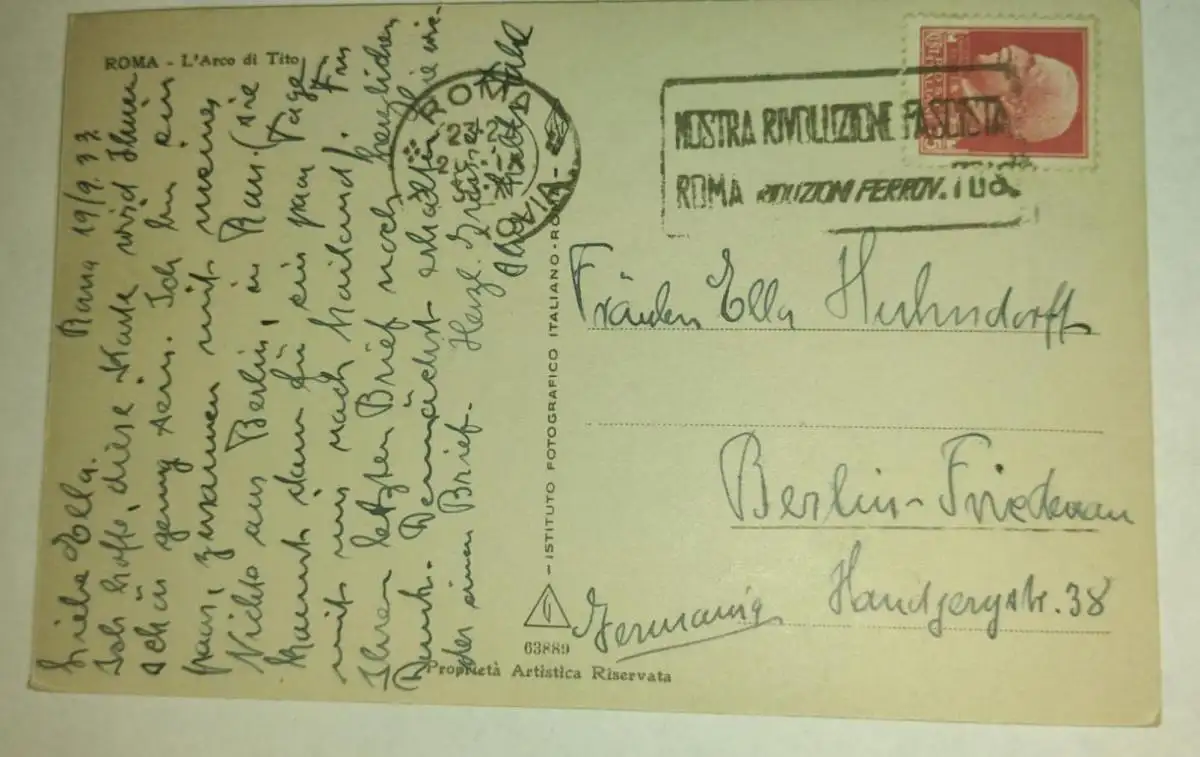 ROMA - L'Arco di Tito
Roma 19/9.33.
Liebe Ella.
Ich hoffe, diese Karte wird Ihnen
schön genug sein. Ich bin ein
paar, zusammen mit meiner
Nichte aus Berlin, in Rom. (sie
kommt dann für ein paar Tage
mit uns nach Mailand). Für
Ihren letzten Brief noch herzlichen
Dank. Demnächst erhalten Sie wie-
der einen Brief. Herzl. Grüsse
ROMA
FERROVIA
MOSTRA RIVOLUZIONE FASCISTA
ROMA RIDUZIONI FERROV.
Fräulein Ella Huhndorff
Berlin-Friedenau
Handjerystr. 38
Germania
- ISTITUTO FOTOGRAFICO ITALIANO - ROMA -
63889
Proprietà Artistica Riservata